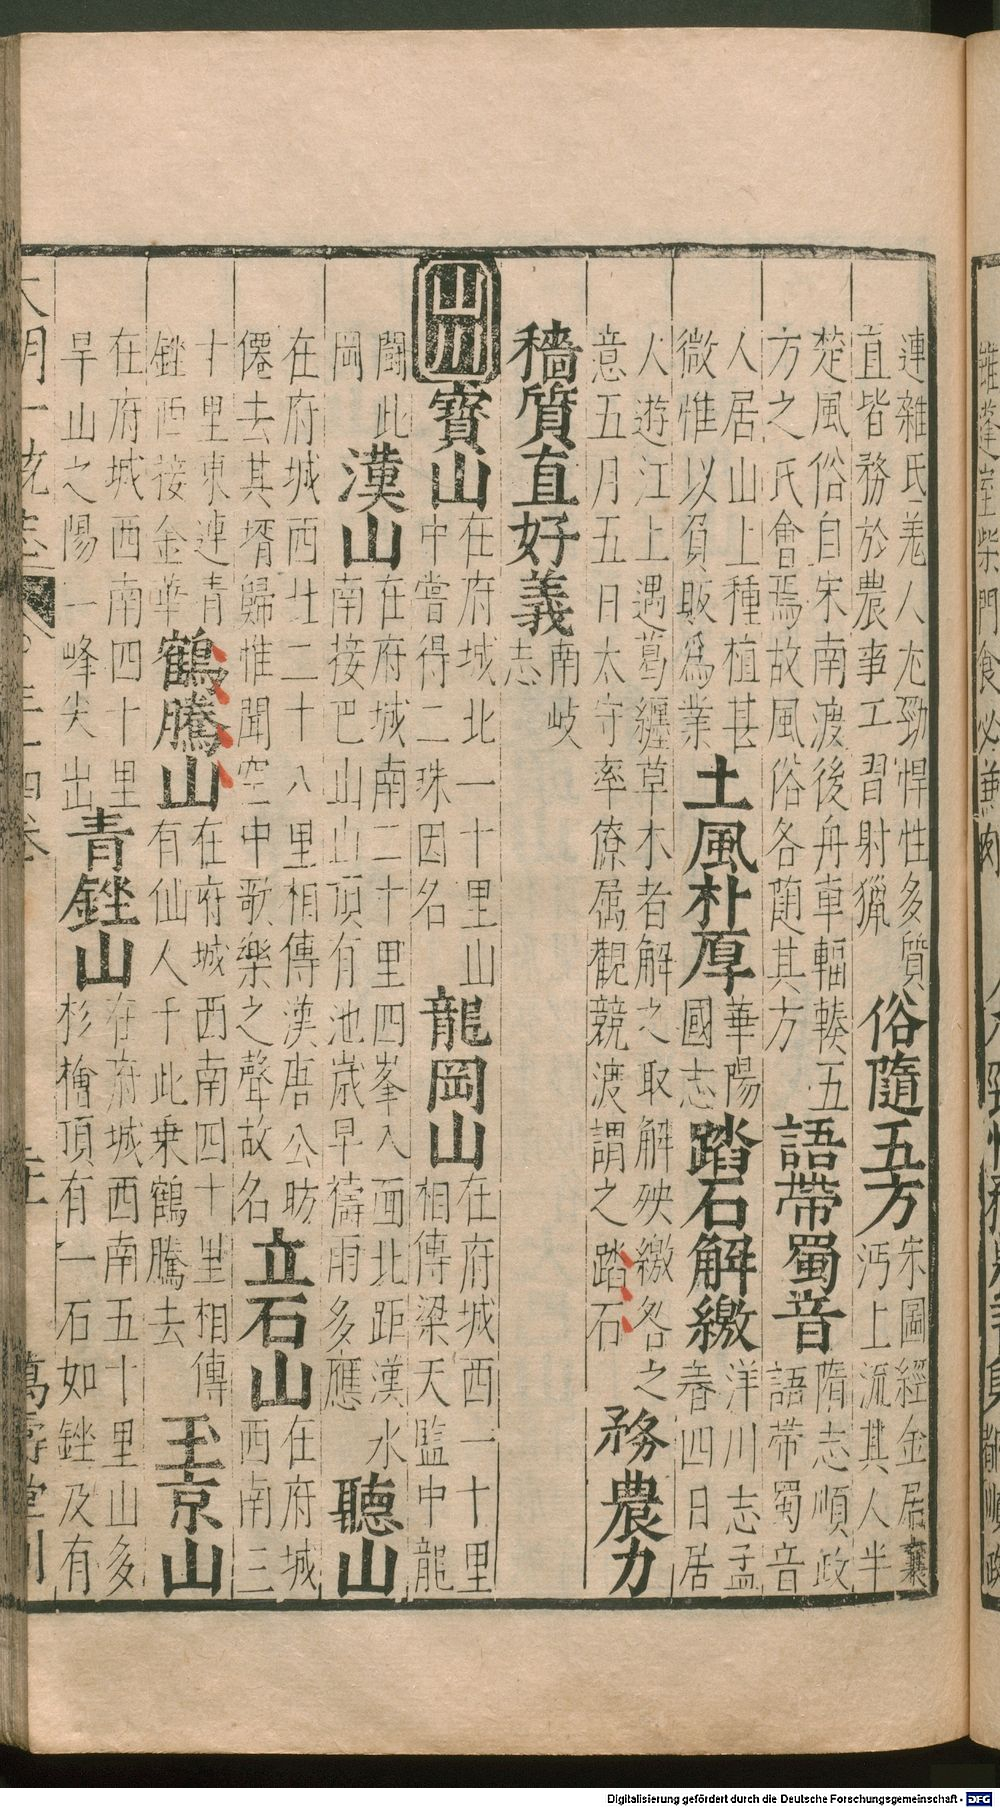 連雜氐羗人尤勁悍性多質
直皆務於農事工習射獵
俗隨五方
宋圖經金居襄
沔上流其人半
楚風俗自宋南渡後舟車輻輳五
方之氏會焉故風俗各随其方
語帶蜀音
隋志順政
語帶蜀音
人居山上種植甚
微惟以負販爲業
土風朴厚
華陽
國志
踏石解繳
洋川志孟
春四日居
人遊江上遇葛纏草木者解之取解殃繳咎之
意五月五日太守率僚属觀競渡謂之踏石
務農力
穡質直好義
南岐
志
山川
寶山
在府城北一十里山
中嘗得二珠因名
龍岡山
在府城西一十里
相傳梁天監中龍
闘此
岡
漢山
在府城南二十里四峯入面北距漢水
南接巴山山頂有池歲旱禱雨多應
聽山
在府城西北二十八里相傳漢唐公昉
僊去其壻歸惟聞空中歌樂之聲故名
立石山
在府城
西南三
十里東連青
銼西接金華
鶴騰山
在府城西南四十里相傳
有仙人于此乗鶴騰去
玉京山
在府城西南四十里
旱山之陽一峰尖出
青銼山
在府城西南五十里山多
杉檜頂有一石如銼及有
大明一統志
三十四卷
五
萬壽堂刊
Digitalisierung gefördert durch die Deutsche Forschungsgemeinschaft - DFG